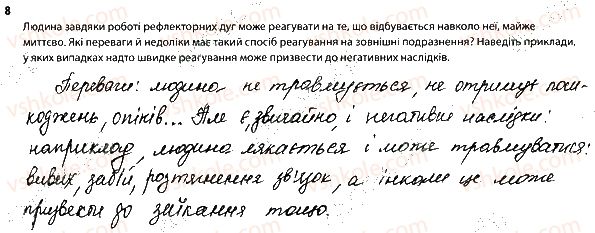 8
Людина завдяки роботі рефлекторних дуг може реагувати на те, що відбувається навколо неї, майже
миттєво. Які переваги й недоліки має такий спосіб реагування на зовнішні подразнення? Наведіть приклади,
у яких випадках надто швидке реагування може призвести до негативних наслідків.
Переваги: людина не травмується, не отримує пош-
коджень, опіків... Але є, звичайно, і негативні наслідки:
наприклад, людина лякається і може травмуватися:
вивих, забій, розтягнення зв'язок, а інколи це може
призвести до заїкання тощо.